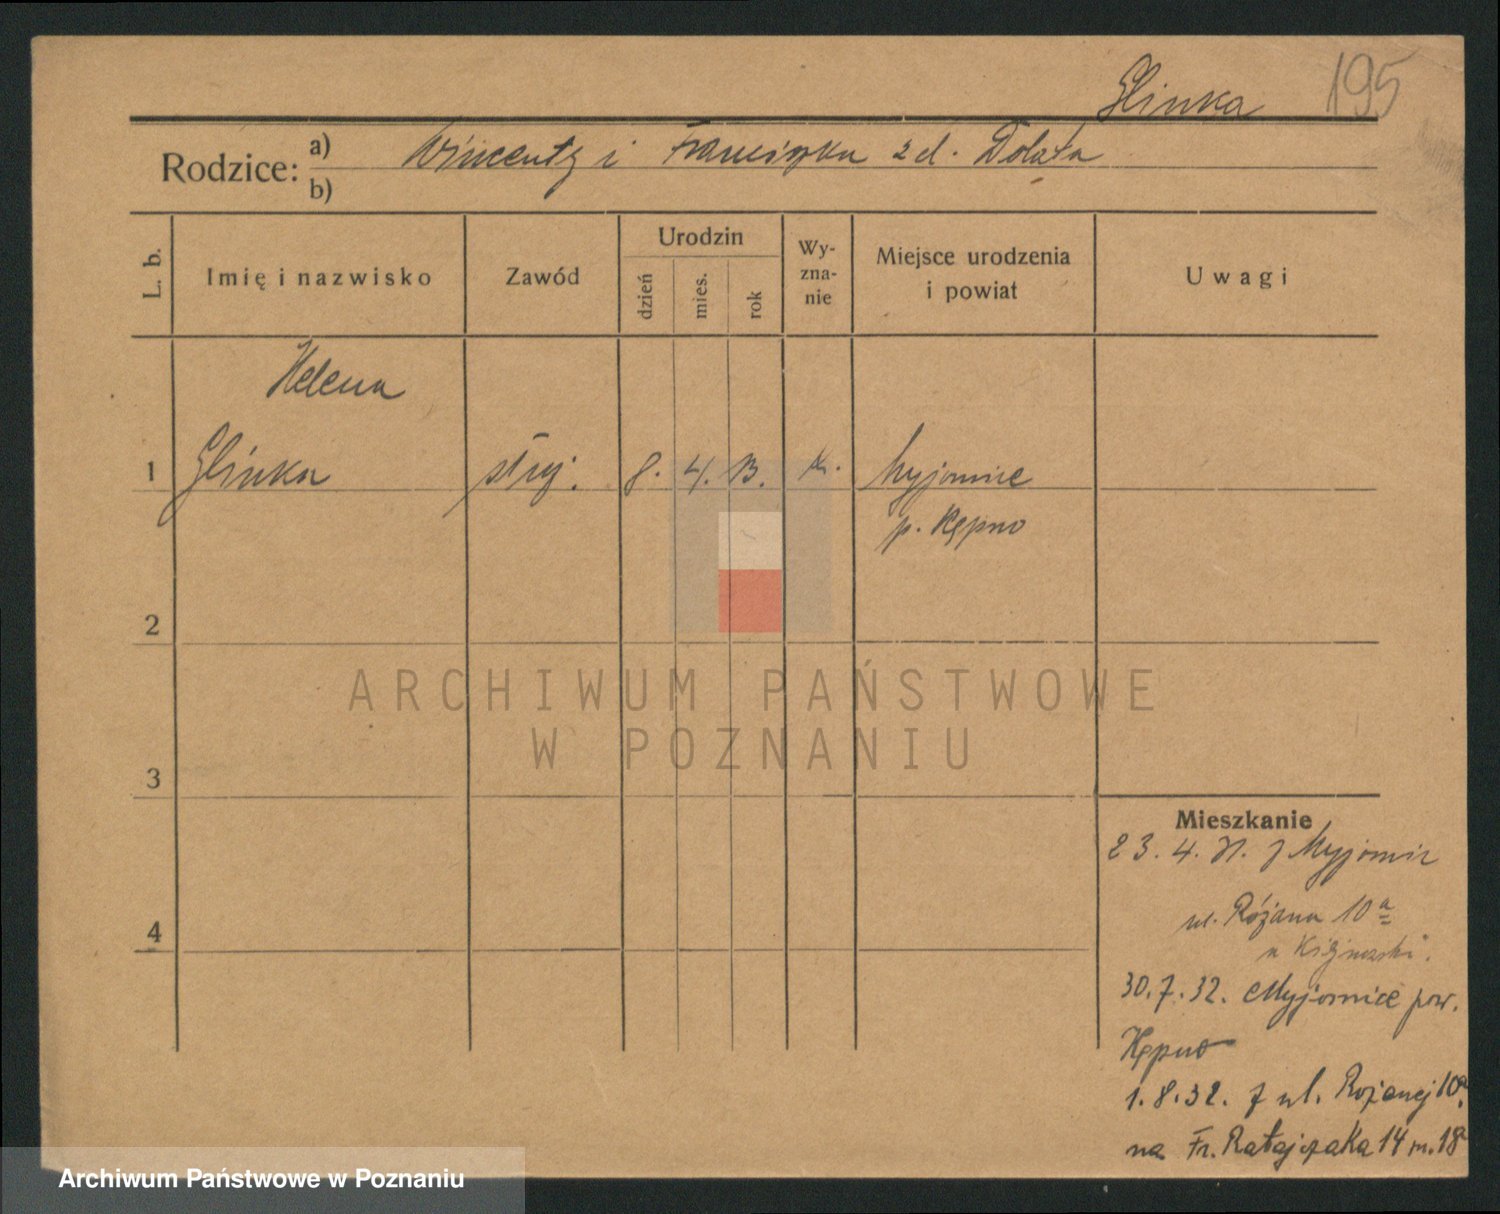 Glinka 195
Rodzice: a) Wincenty i Franciszka z d. Dolata
b)
L. b. Imię i nazwisko Zawód Urodzin dzień mies. rok Wy-zna-nie Miejsce urodzenia i powiat Uwagi
Helena
1 Glinka służ. 8. 4. 13. k. Myjomice
p. Kępno
2
ARCHIWUM PAŃSTWOWE
W POZNANIU
3
Mieszkanie
23. 4. 31. z Myjomic
ul. Różana 10a
4
30.7.32. Myjomice pow.
Kępno
1.8.32. z ul. Rożanej 10a.
na Fr. Ratajczaka 14 m. 18
Archiwum Państwowe w Poznaniu